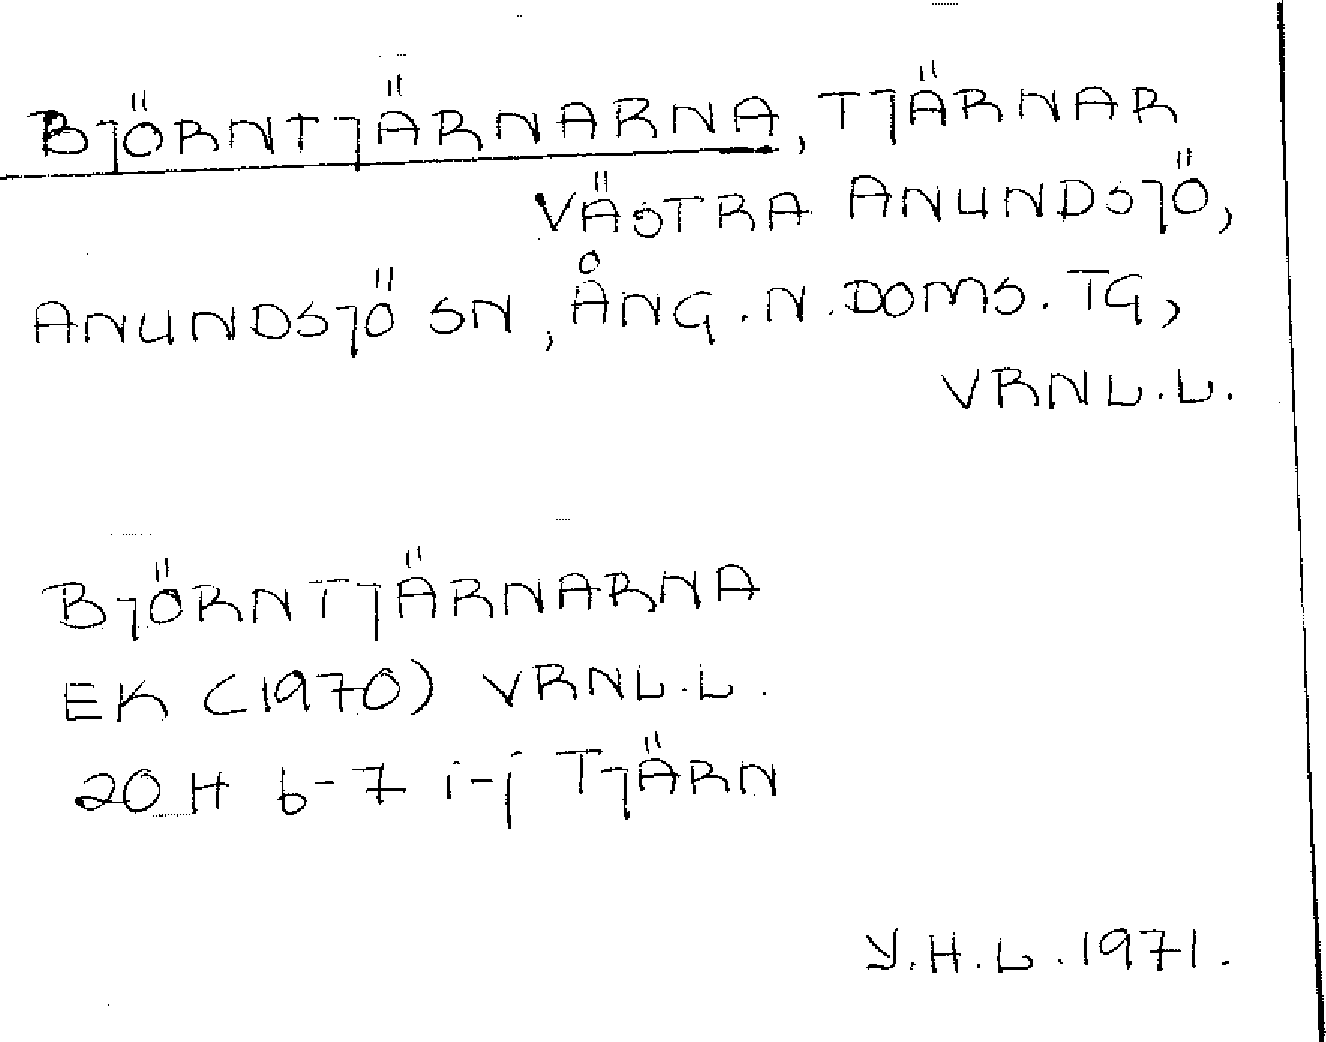 BJÖRNTJÄRNARNA, TJÄRNAR
VÄSTRA ANUNDSJÖ,
ANUNDSJÖ SN, ÅNG. N. DOMS. TG,
VRNL.L.
BJÖRNTJÄRNARNA
EK (1970) VRNL.L.
20 H 6-7 i-j TJÄRN
Y.H.L. 1971.